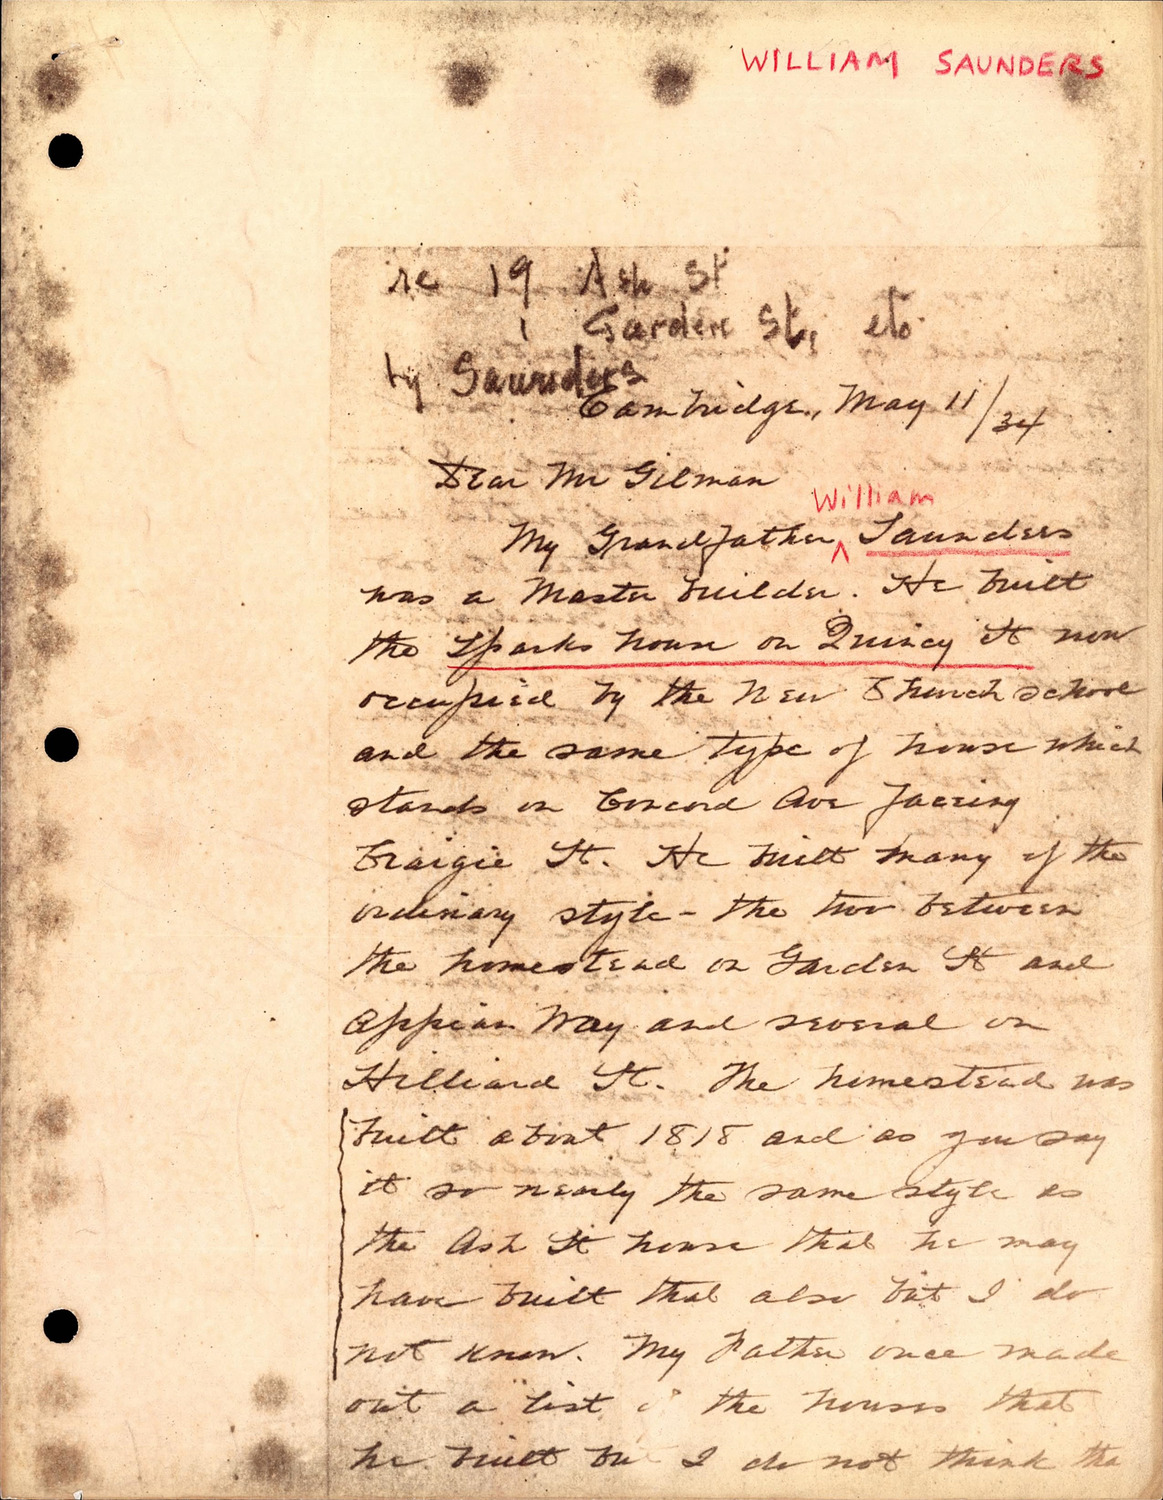 WILLIAM SAUNDERS
re 19 Ash St
1 Garden St, etc.
by Saunders
Cambridge, May 11/34
Dear Mr Gilman
William
My Grandfather ^ Saunders
was a Master builder. He built
the Sparks house on Quincy St now
occupied by the New Church school
and the same type of house which
stands on Concord Ave facing
Craigie St. He built many of the
ordinary style - the two between
the homestead on Garden St and
Appian Way and several on
Hilliard St. The homestead was
built about 1818 and as you say
it so nearly the same style as
the Ash St house that he may
have built that also but I do
not know. My Father once made
out a list of the houses that
he built but I do not think tha